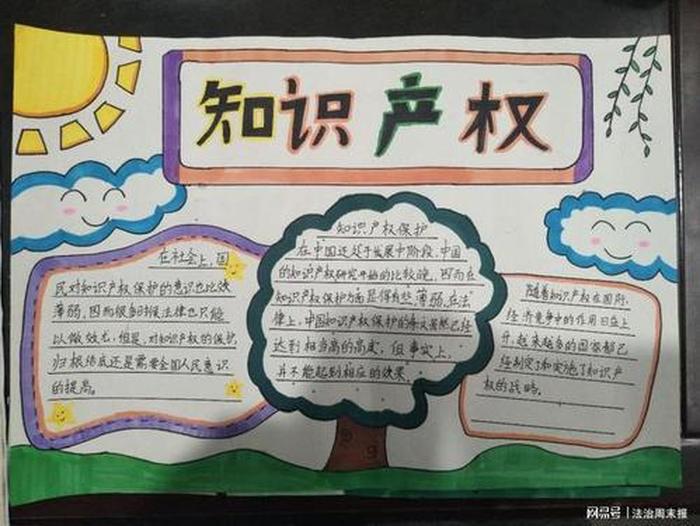 知识产权
在社会上，国
民对知识产权保护的意识也比较
薄弱，因而很多时候法律也只能
以做效尤，但是，对知识产权的保护
归根结底还是需要全国人民意识
的提高。
知识产权保护
在中国还处于发展中阶段，中国
的知识产权研究开始的比较晚，因而在
知识产权保护方面显得有些薄弱，在法
律上，中国知识产权保护的条文虽然已经
达到相当高的高度，但事实上，
并不能起到相应的效果。
随着知识产权在国际
经济竞争中的作用日益上
升，越来越多的国家都已
经制定了和实施了知识产
权的战略。
网易号 | 法治周末报